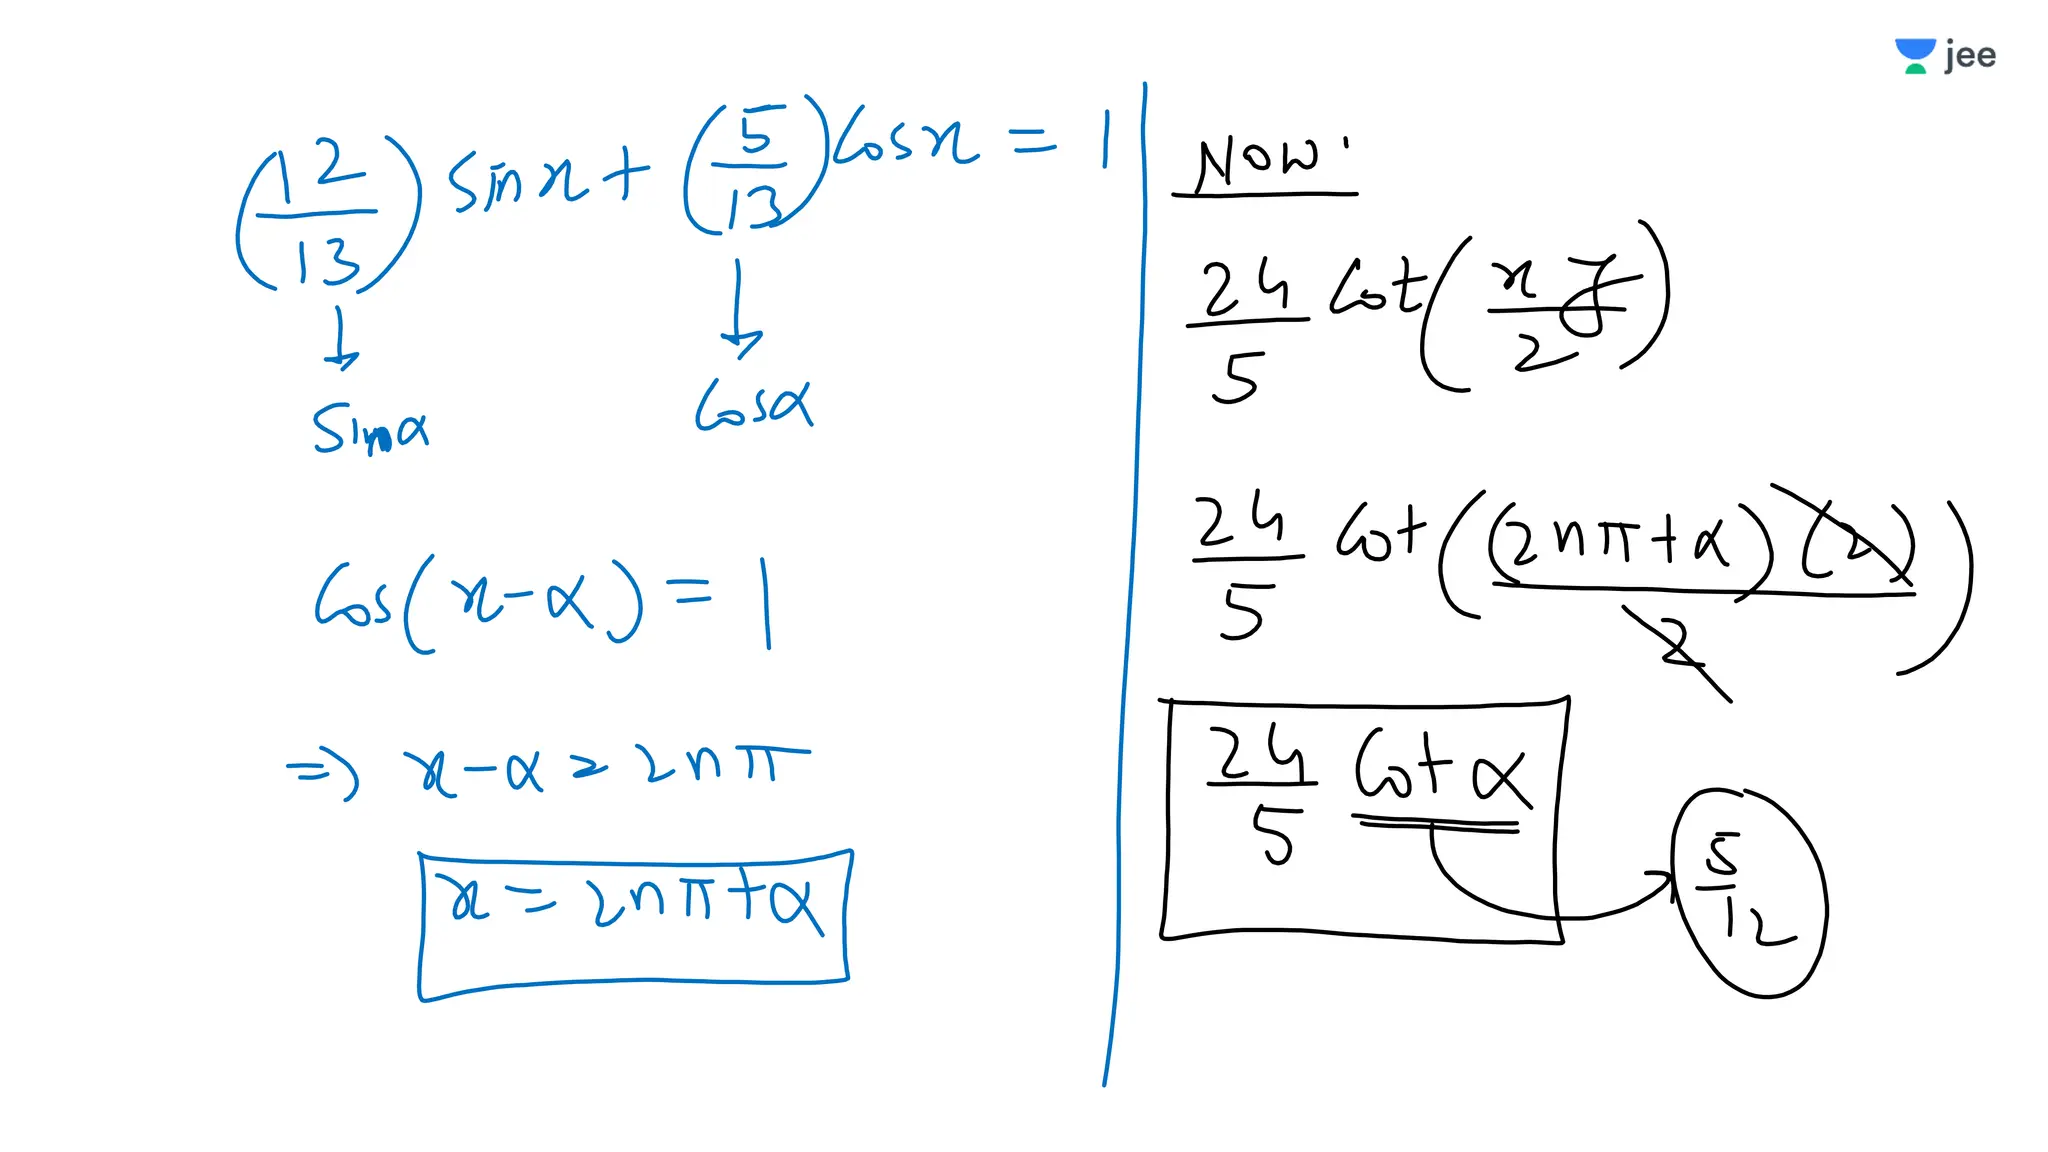 jee
(12/13) sin x + (5/13) Cos x = 1
↓ ↓
Sin α Cos α
Cos(x - α) = 1
⇒ x - α = 2nπ
x = 2nπ + α
NOW:
24/5 Cot(xy/2)
24/5 Cot((2nπ + α)(2)/2)
24/5 Cot α → 5/12